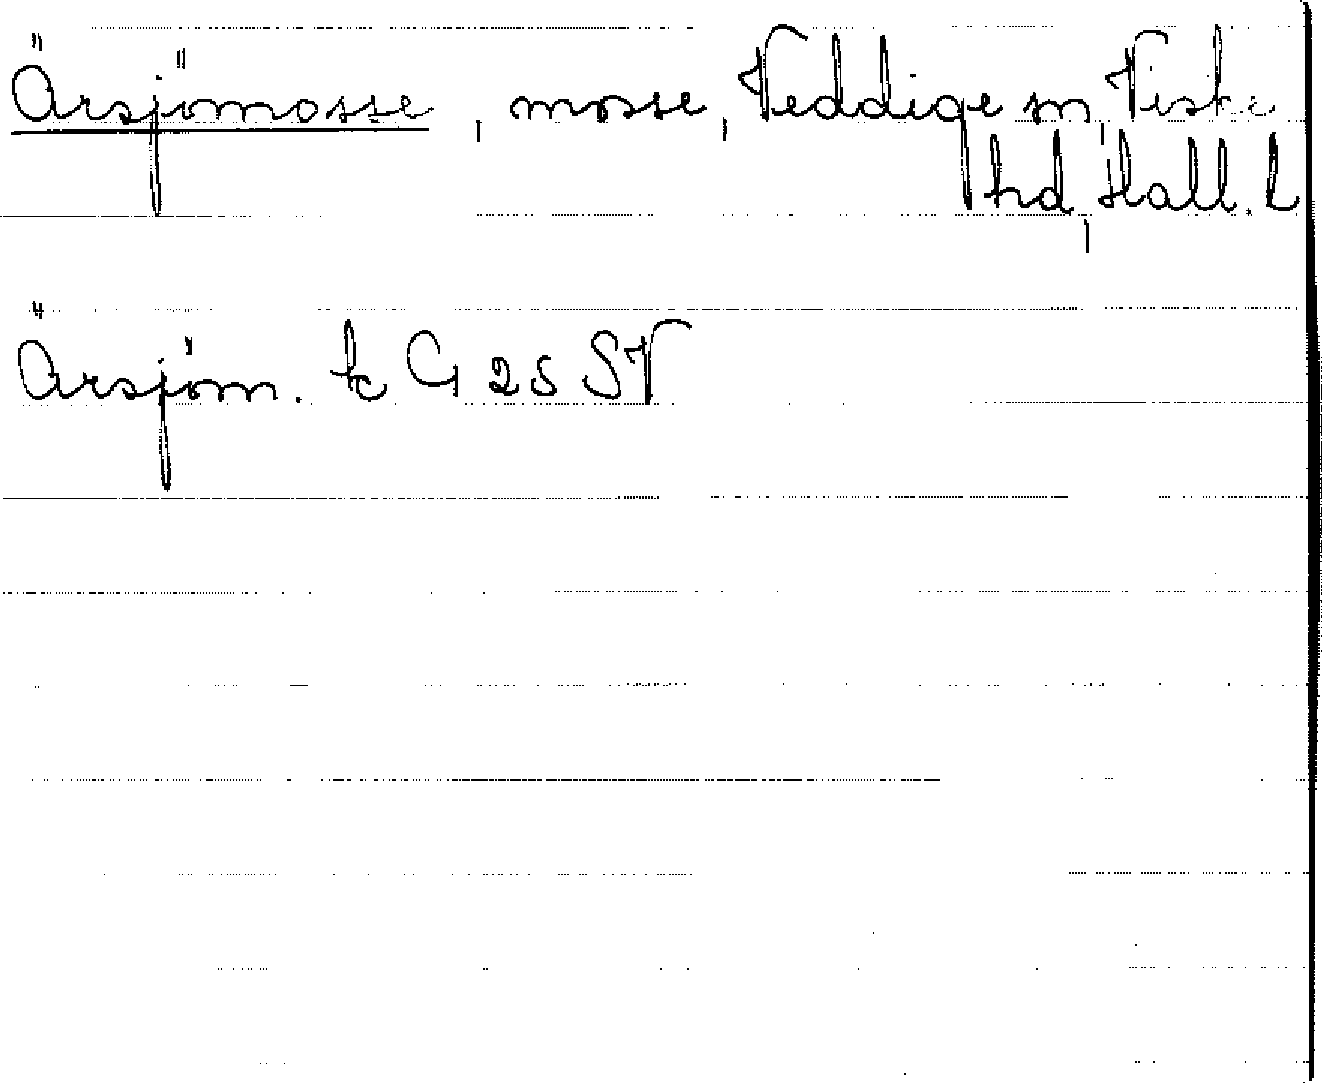 Örsjömosse, mosse, Veddige sn, Viske
hd, Hall. L
Örsjöm. k G 25 SV